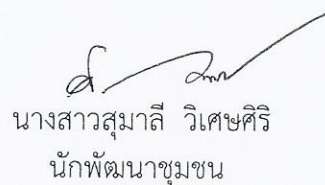 นางสาวสุมาลี วิเศษศิริ
นักพัฒนาชุมชน